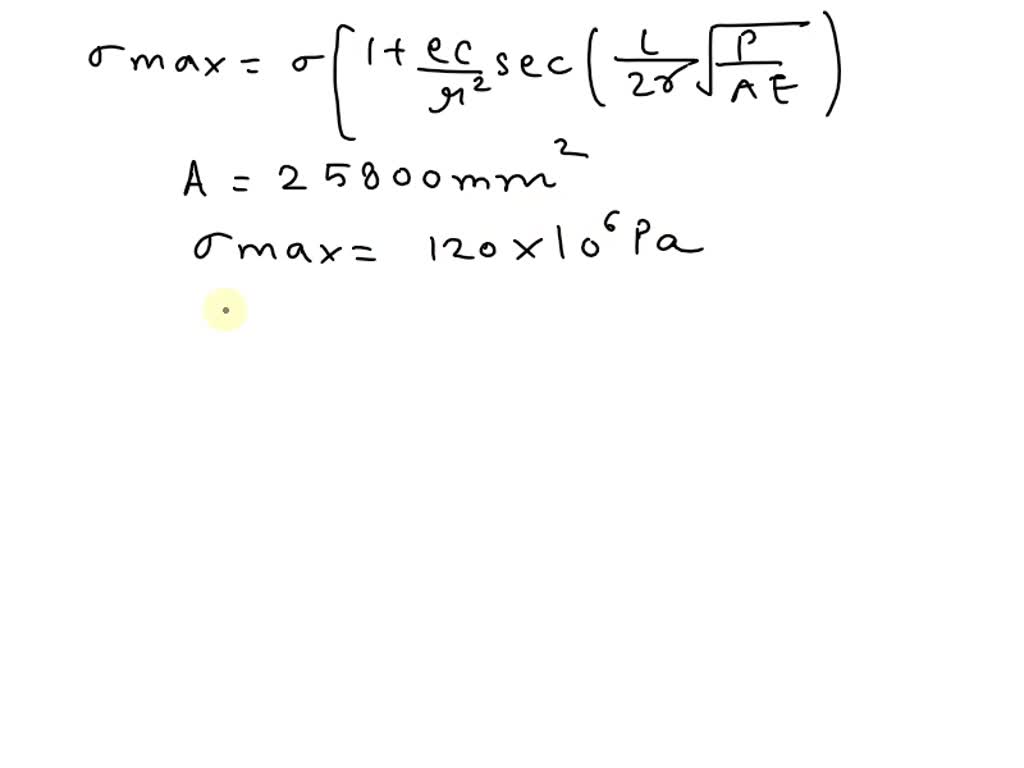 σmax = σ[1+ ec/r² sec(L/2r √P/AE)
A = 25800mm²
σmax = 120×10⁶Pa